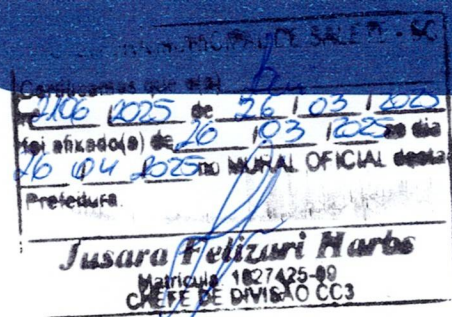 MUNICIPAL DE SALETE - SC
Certificamos que o(a)
nº 2106 / 2025 de 26 / 03 / 2025
foi afixado(a) de 26 / 03 / 2025 ao dia
26 04 2025 no MURAL OFICIAL desta
Prefeitura.
Jusara Felizari Marbs
Matrícula 1827425-09
CHEFE DE DIVISÃO CC3